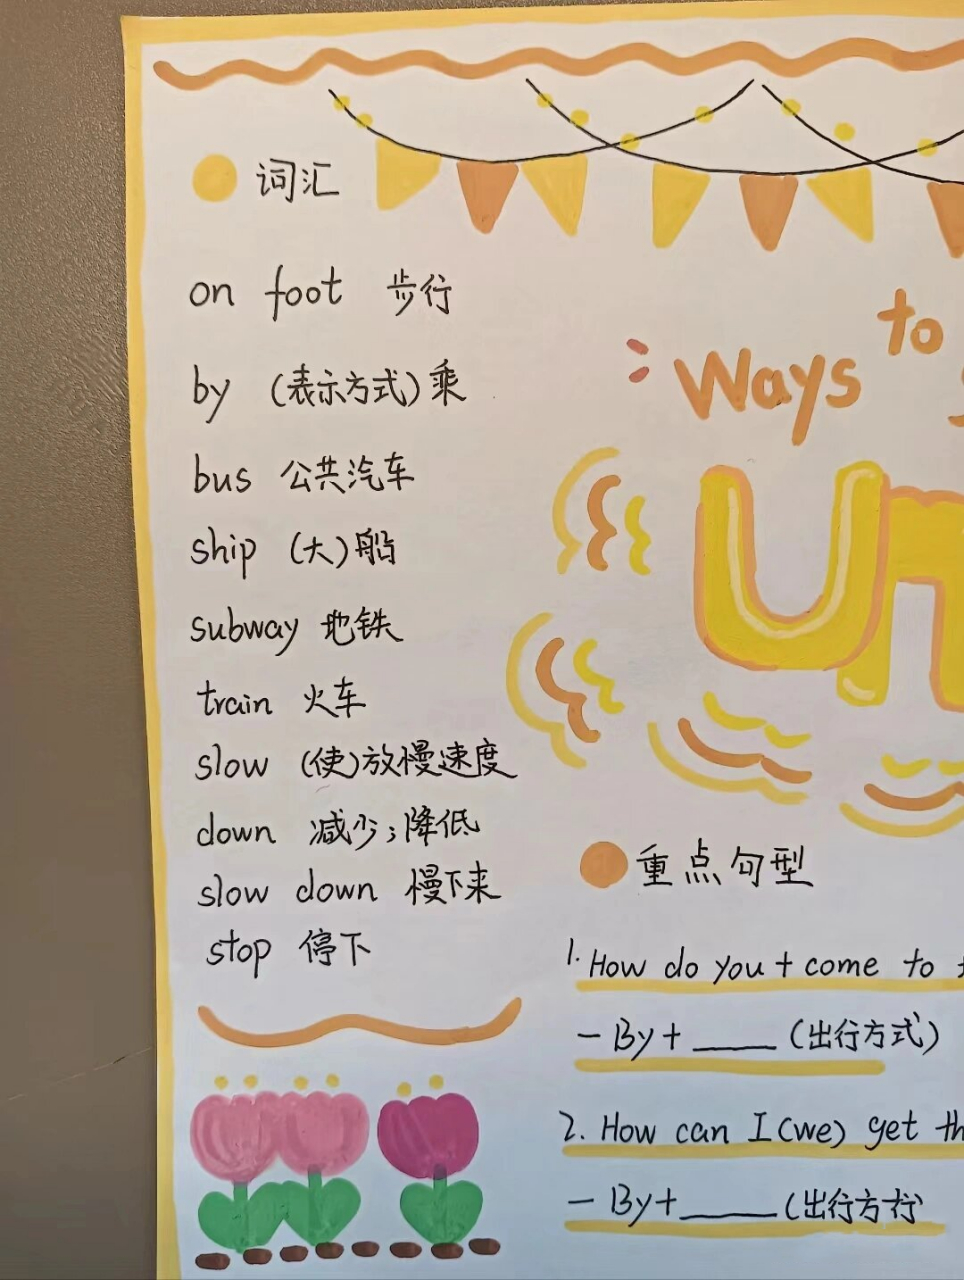 词汇
on foot 步行
by (表示方式)乘
bus 公共汽车
ship (大)船
subway 地铁
train 火车
slow (使)放慢速度
down 减少;降低
slow down 慢下来
stop 停下
Ways to
Un
重点句型
1. How do you + come to
- By + ____ (出行方式)
2. How can I (we) get th
- By + ____ (出行方